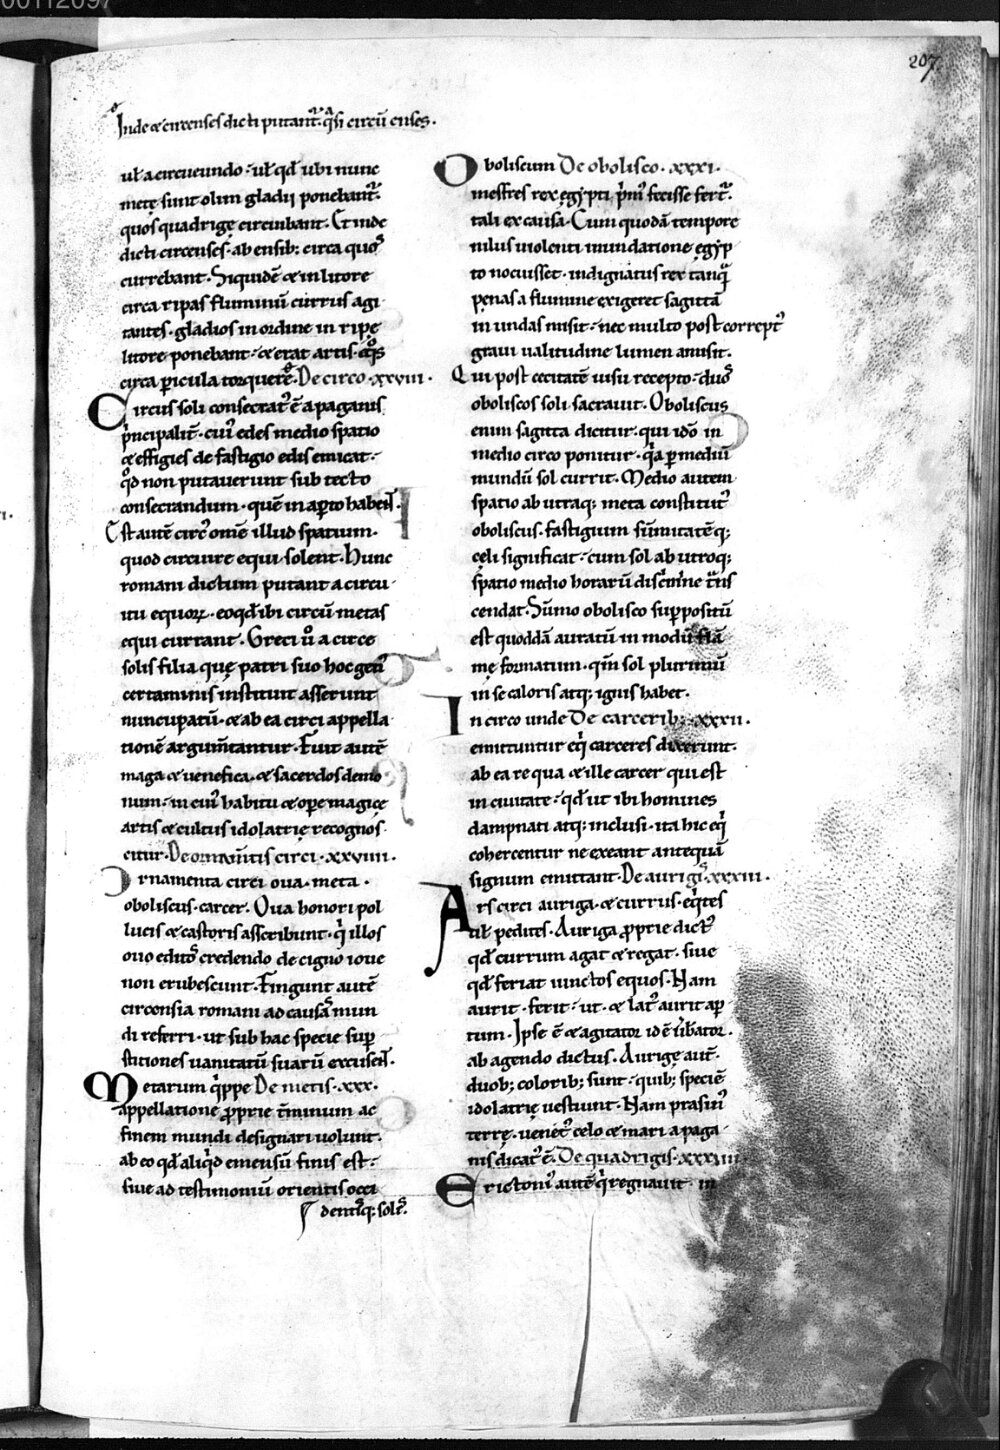 00112097
207
Inde & circenses dicti putant᷑. q̈si circũ enses.
ul̃ a circueundo· ul̃ qđ ubi nunc
metę sunt olim gladii ponebant᷑.
quos quadrigę circuibant. Et inde
dicti circenses· ab ensib; circa quos
currebant. Siquidẽ & in litore
circa ripas fluminũ currus agi
tantes· gladios in ordine in ripę
litore ponebant· & erat artis· eq̊s
circa ꝑicula torquere. De circo· xxviii.
Circus soli consecrat᷒ ẽ a paganis
p̃ncipalit̃· cui᷒ edes medio spatio
& effigies de fastigio edis emicat·
qđ non putauerunt sub tecto
consecrandum· quẽ in aꝑto habeñt.
Est autẽ circ᷒ omẽ illud spatium·
quod circuire equi solent. Hunc
romani dictum putant a circu
itu equoꝝ· eo qđ ibi circũ metas
equi currant. Greci ů a circe
solis filia quę patri suo hoc gen᷒
certaminis instituit asserunt
nuncupatũ· & ab ea circi appella
tionẽ argum̃tantur. Fuit autẽ
maga & uenefica· & sacerdos demo
num· in cui᷒ habitu & ope magicę
artis & cultus idolatrię recognos
citur. De ornam̃tis circi· xxviiii.
Ornamenta circi oua· meta·
oboliscus· carcer. Oua honori pol
lucis & castoris asscribunt· qͥ illos
ouo editos credendo de cigno ioue
non erubescunt. Fingunt autẽ
circensia romani ad causas mun
di referri· ut sub hac specie suꝑ
stitiones uanitatũ suarũ excuseñt.
Metarum qͥppe De metis· xxx.
appellatione ꝓprie t̃minum ac
finem mundi designari uolunt.
ab eo qđ aliqͥd emensũ finis est·
siue ad testimoniũ orientis occi
dentisq; solis.
Oboliscum De obolisco· xxxi.
mesfres rex egypti p̃m᷒ fecisse fert᷑.
tali ex causa. Cum quodã tempore
nilus uiolenti inundatione egyp
to nocuisset· indignatus rex tanq̃
pęnas a flumine exigeret sagittã
in undas misit· nec multo post corrept᷒
graui ualitudine lumen amisit.
Qui post cecitatẽ uisu recepto· duos
oboliscos soli sacrauit. Oboliscus
enim sagitta dicitur· qui idõ in
medio circo ponitur· qͣa ꝑ mediũ
mundũ sol currit. Medio autem
spatio ab utraq; meta constitut᷒
oboliscus· fastigium sũmitatẽq;
cęli significat· cum sol ab utroq;
spatio medio horarũ discͥmine t̃ns
cendat. Sũmo obolisco suppositũ
est quoddã auratũ in modũ flã
mę formatum· qm̃ sol plurimũ
in se caloris atq; ignis habet.
In circo unde De carcerib; xxxii.
emittuntur eqͥ carceres dixerunt.
ab ea re qua & ille carcer qui est
in ciuitate· qđ ut ibi homines
dampnati atq; inclusi· ita hic eqͥ
cohercentur ne exeant antequã
signum emittant. De aurigis· xxxiii.
Ars circi auriga· & currus· eqͥtes
ul̃ pedites. Auriga ꝓprie dict᷒
qđ currum agat & regat· siue
qđ feriat iunctos equos. Nam
aurit· ferit· ut· & lat᷒ aurit ap
tum. Ipse ẽ & agitator id ẽ ũb̃ator.
ab agendo dictus. Aurigę aut̃.
duob; colorib; sunt· quib; speciẽ
idolatrię uestiunt. Nam prasin᷒
terrę· uenet᷒ celo & mari a paga
nis dicat᷒ ẽ. De quadrigis· xxxiiii.
Erictoni᷒ autẽ qͥ regnauit in